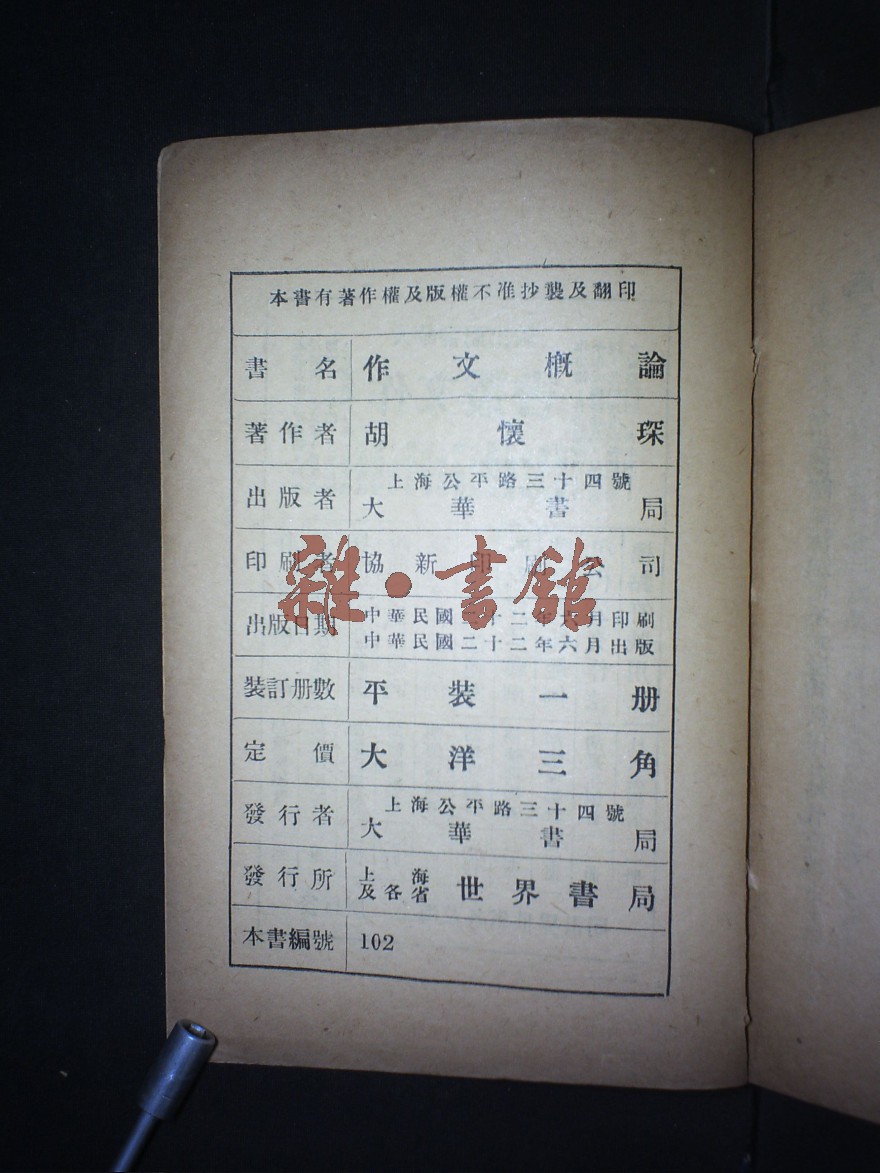 本書有著作權及版權不准抄襲及翻印
書名 作文概論
著作者 胡懷琛
出版者 上海公平路三十四號
大華書局
印刷者 協新印刷公司
出版日期 中華民國二十二年六月印刷
中華民國二十二年六月出版
裝訂册數 平裝一册
定價 大洋三角
發行者 上海公平路三十四號
大華書局
發行所 上海
及各省 世界書局
本書編號 102
雜·書館